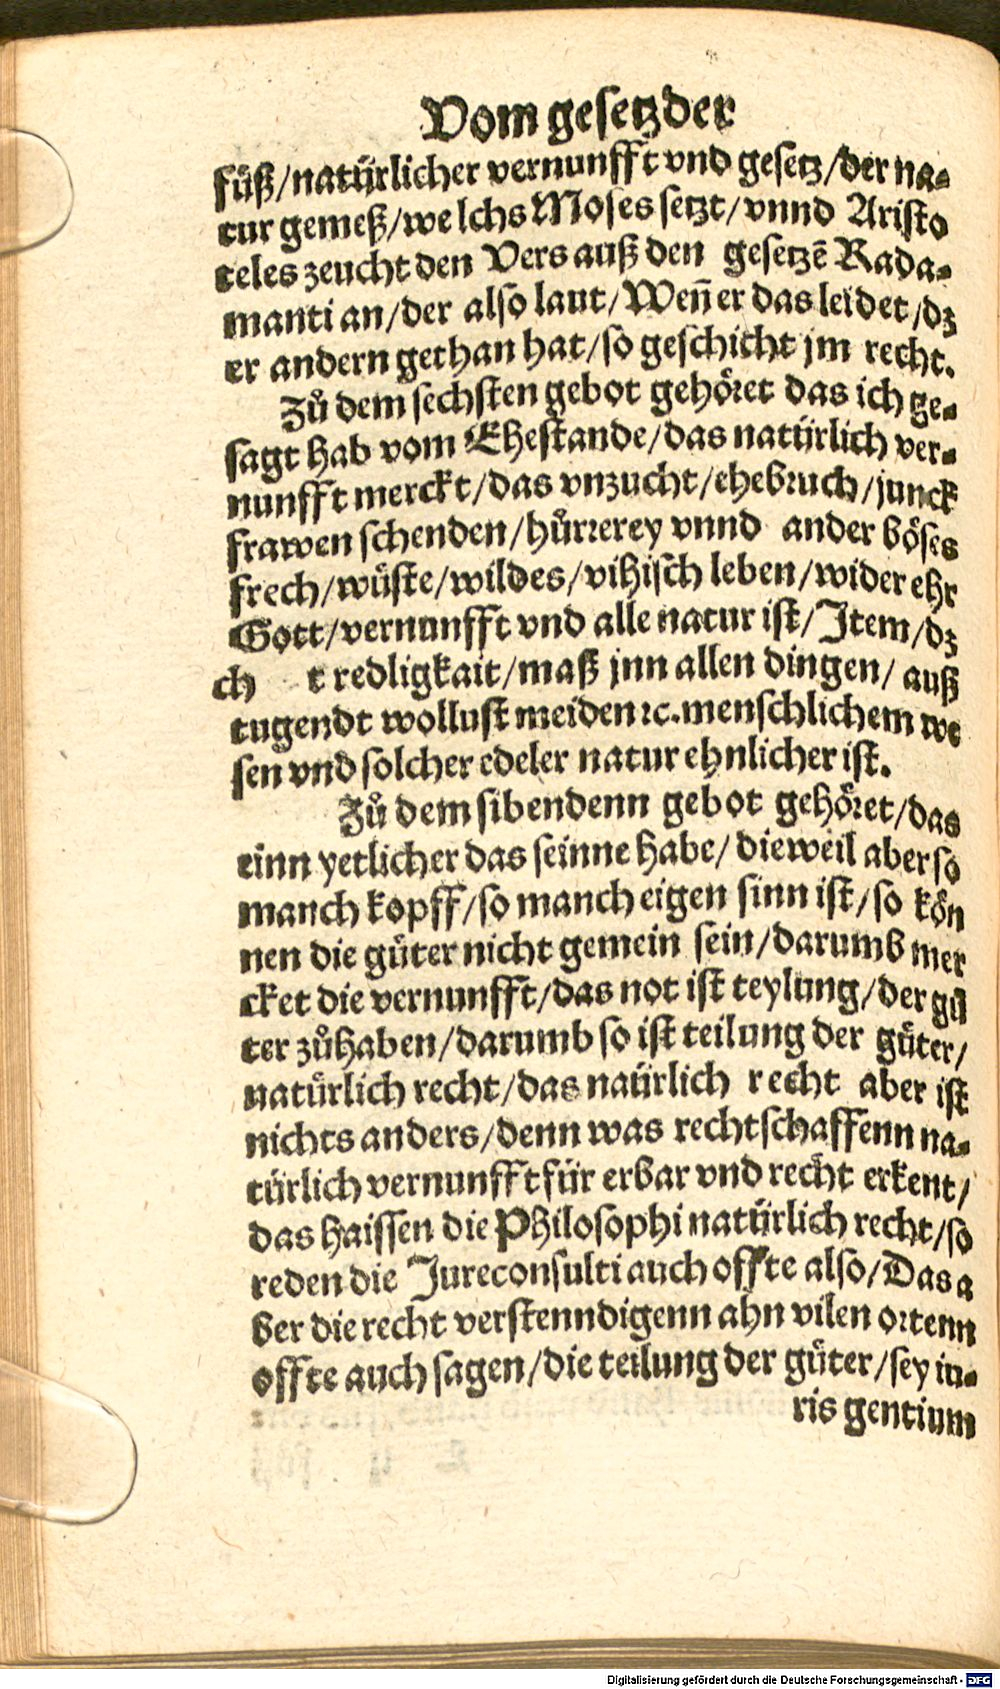 Vom gesetz der
füß/natürlicher vernunfft vnd gesetz/der na⸗
tur gemeß/we lchs Moses setzt/vnnd Aristo
teles zeucht den Vers auß den gesetzē Rada⸗
manti an/der also laut/Weñ er das leidet/dz
er andern gethan hat/so geschicht jm recht.
Zů dem sechsten gebot gehöret das ich ge⸗
sagt hab vom Ehestande/das natürlich ver⸗
nunfft merckt/das vnzucht/ehebruch/junck
frawen schenden/hůrrerey vnnd ander böses
frech/wüste/wildes/vihisch leben/wider ehr
Gott/vernunfft vnd alle natur ist/Item/dz
ch t redligkait/maß jnn allen dingen/ auß
tugendt wollust meiden ꝛc. menschlichem we
sen vnd solcher edeler natur ehnlicher ist.
Zů dem sibendenn gebot gehöret/das
einn yetlicher das seinne habe/ dieweil aber so
manch kopff/so manch eigen sinn ist/so kön
nen die güter nicht gemein sein/darumb mer
cket die vernunfft/das not ist teylung/der gü
ter zůhaben/darumb so ist teilung der güter/
natürlich recht/das naürlich recht aber ist
nichts anders/denn was rechtschaffenn na⸗
türlich vernunfft für erbar vnd recht erkent/
das haissen die Philosophi natürlich recht/so
reden die Jureconsulti auch offte also/Das a
ber die recht verstenndigenn ahn vilen ortenn
offte auch sagen/die teilung der güter/sey iu⸗
ris gentium
Digitalisierung gefördert durch die Deutsche Forschungsgemeinschaft - DFG